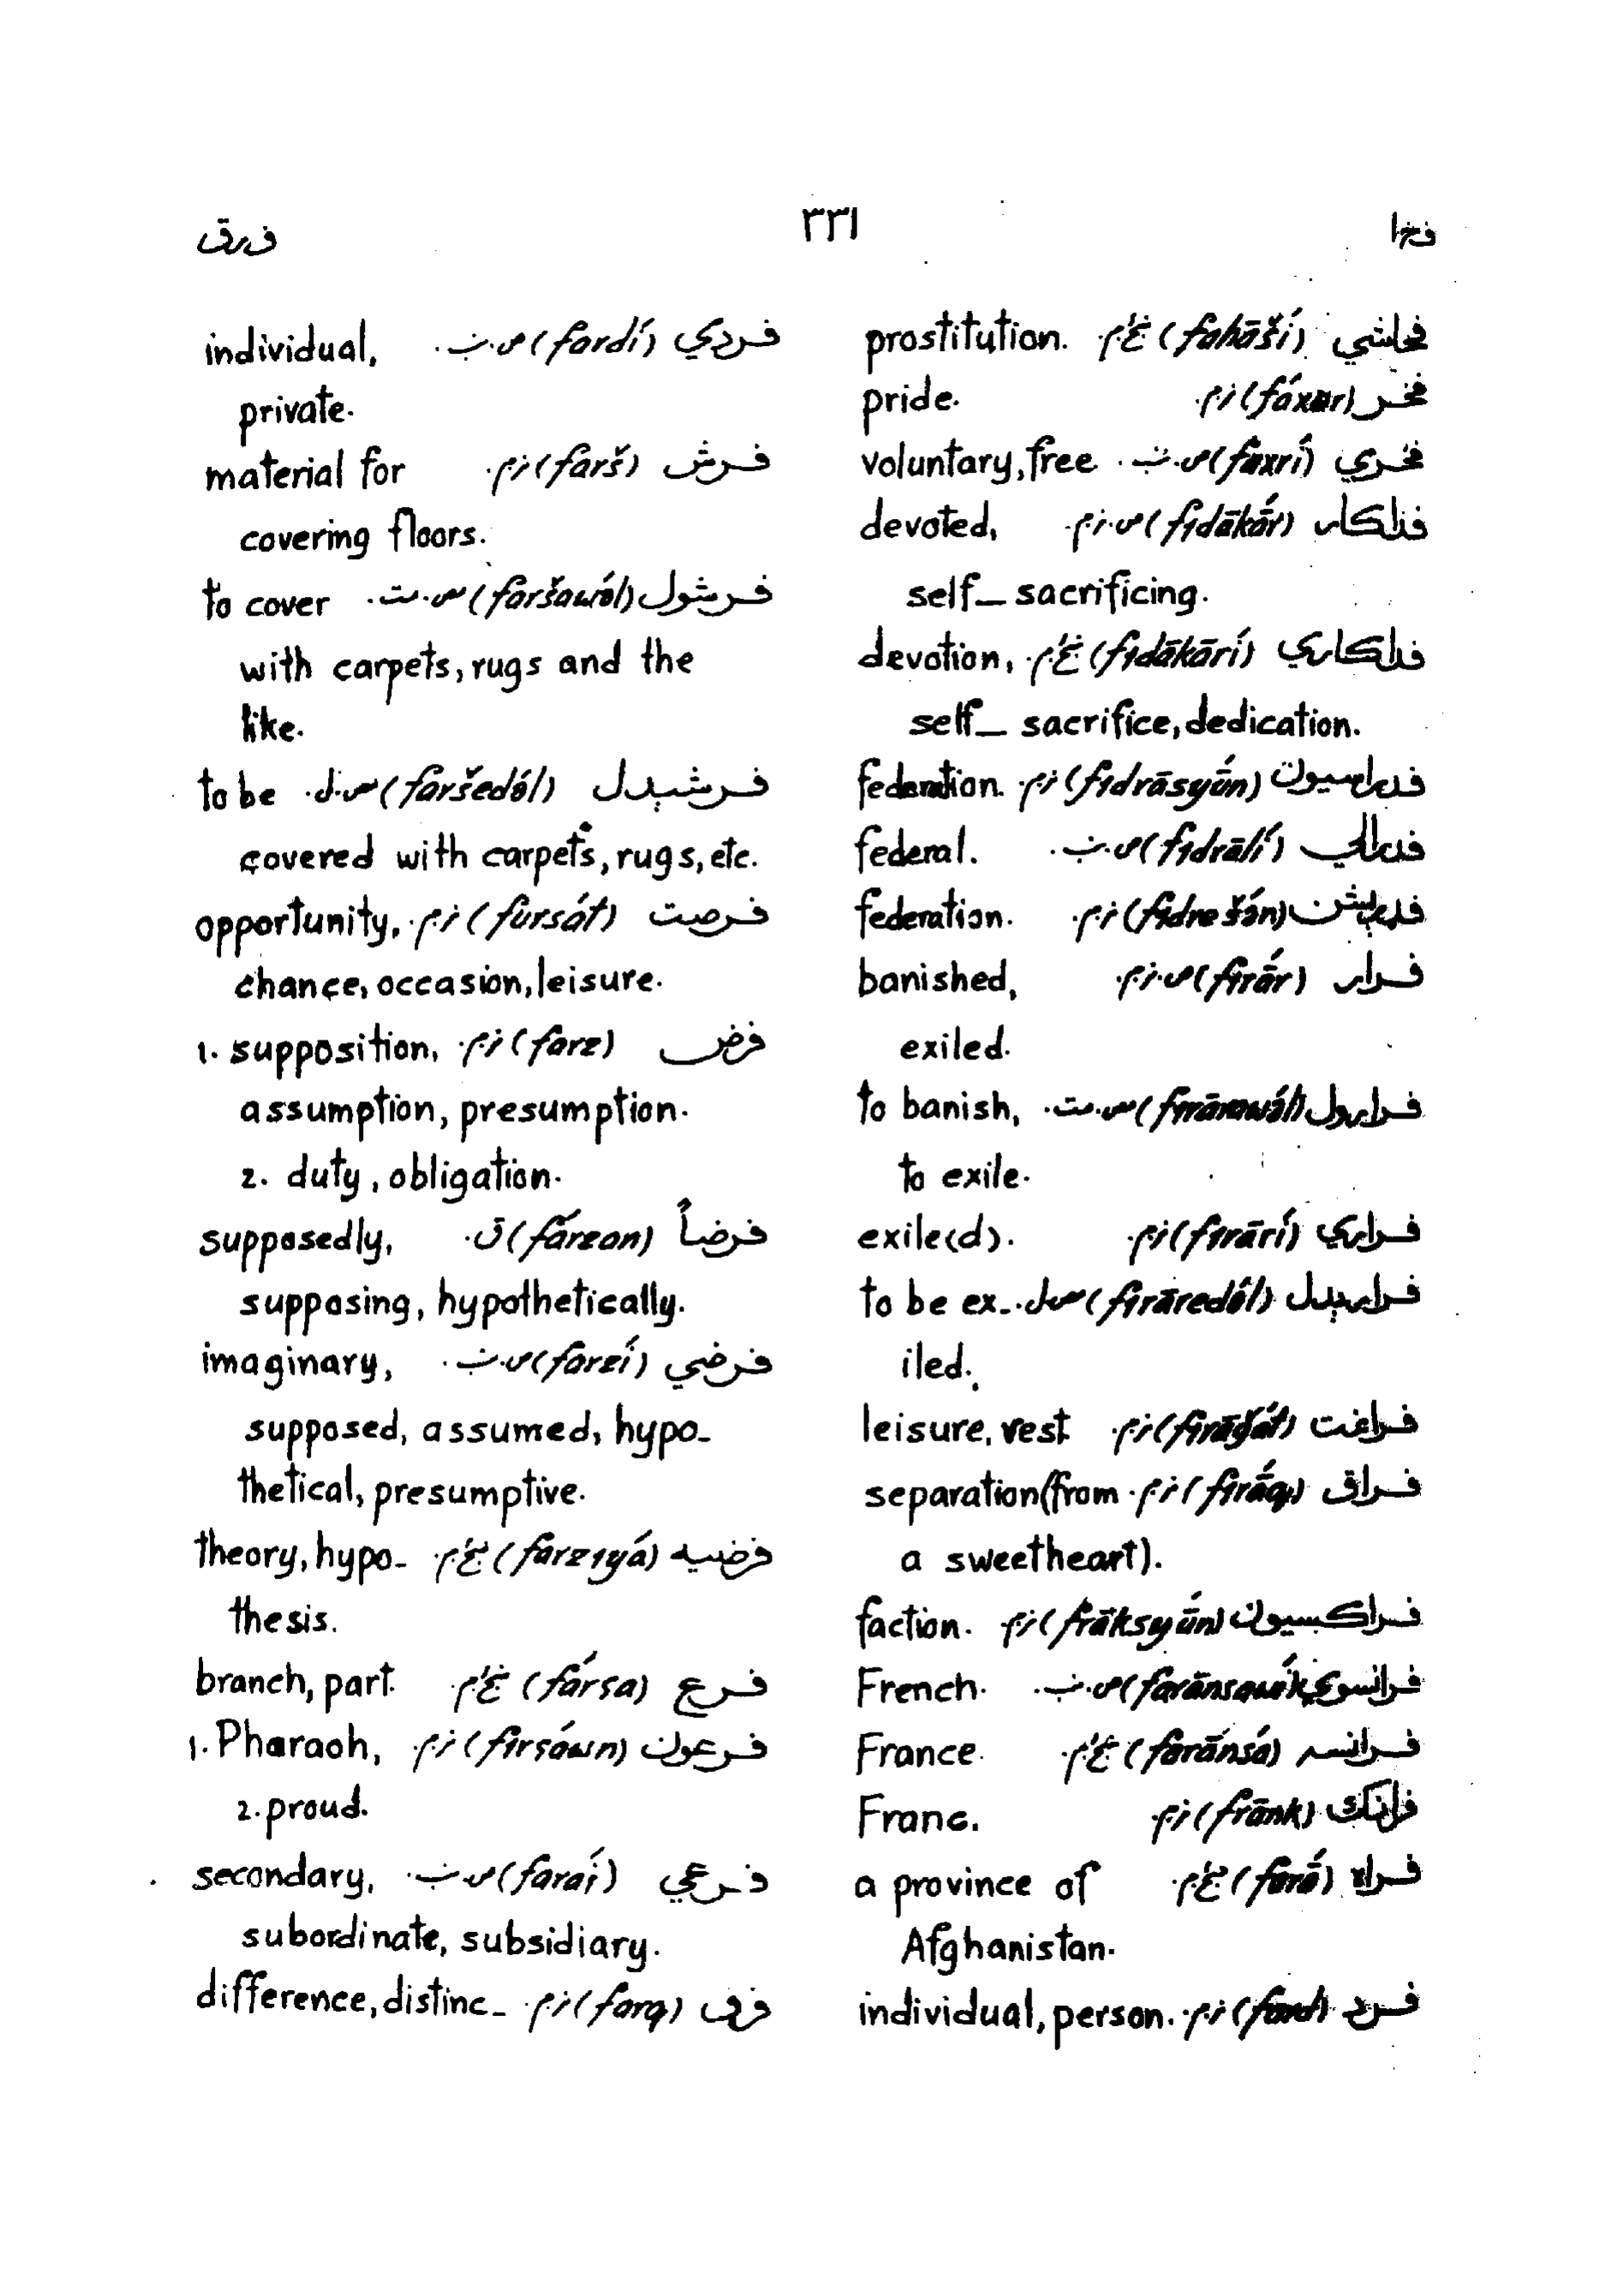 فحا
٣٣١
فرق
فحاشي (fahāší) prostitution.
فخر (fáxar) pride.
فخري (faxrí) voluntary, free
فداکار (fıdākā́r) devoted,
self_ sacrificing.
فداکاري (fıdākārí) devotion,
self_ sacrifice, dedication.
فدراسيون (fıdrāsyū́n) federation.
فدرالي (fıdrālí) federal.
فدريشن (fıdrešə́n) federation.
فرار (fırā́r) banished,
exiled.
فرارول (fırārawə́l) to banish,
to exile.
فراري (fırārí) exile(d).
فرارېدل (fırāredə́l) to be ex_
iled.
فراغت (fırāǧát) leisure, rest
فراق (fırā́q) separation (from
a sweetheart).
فراکسيون (frāksyū́n) faction.
فرانسوي (farānsawí) French.
فرانسه (farānsá) France.
فرانک (frānk) Franc.
فراه (farā́) a province of
Afghanistan.
فرد (fard) individual, person.
فردي (fardí) individual,
private.
فرش (farš) material for
covering floors.
فرشول (faršawə́l) to cover
with carpets, rugs and the
like.
فرشېدل (faršedə́l) to be
covered with carpets, rugs, etc.
فرصت (fursát) opportunity,
chance, occasion, leisure.
فرض (farz) 1. supposition,
assumption, presumption.
2. duty, obligation.
فرضاً (fárzan) supposedly,
supposing, hypothetically.
فرضي (farzí) imaginary,
supposed, assumed, hypo_
thetical, presumptive.
فرضيه (farzıyá) theory, hypo_
thesis.
فرع (fárʕa) branch, part.
فرعون (fırʕáwn) 1. Pharaoh,
2. proud.
فرعي (faraí) secondary,
subordinate, subsidiary.
فرق (farq) difference, distinc_